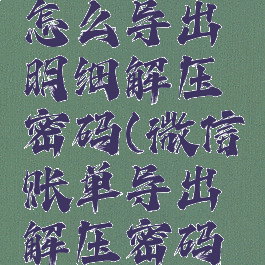 怎么导出
明细解压
密码(微信
账单导出
解压密码